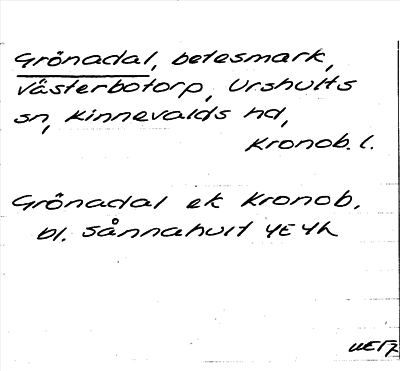 Grönadal, betesmark,
Västerbotorp, Urshults
sn, Kinnevalds hd,
Kronob. l.
Grönadal ek Kronob.
bl. Sånnahult 4E4h